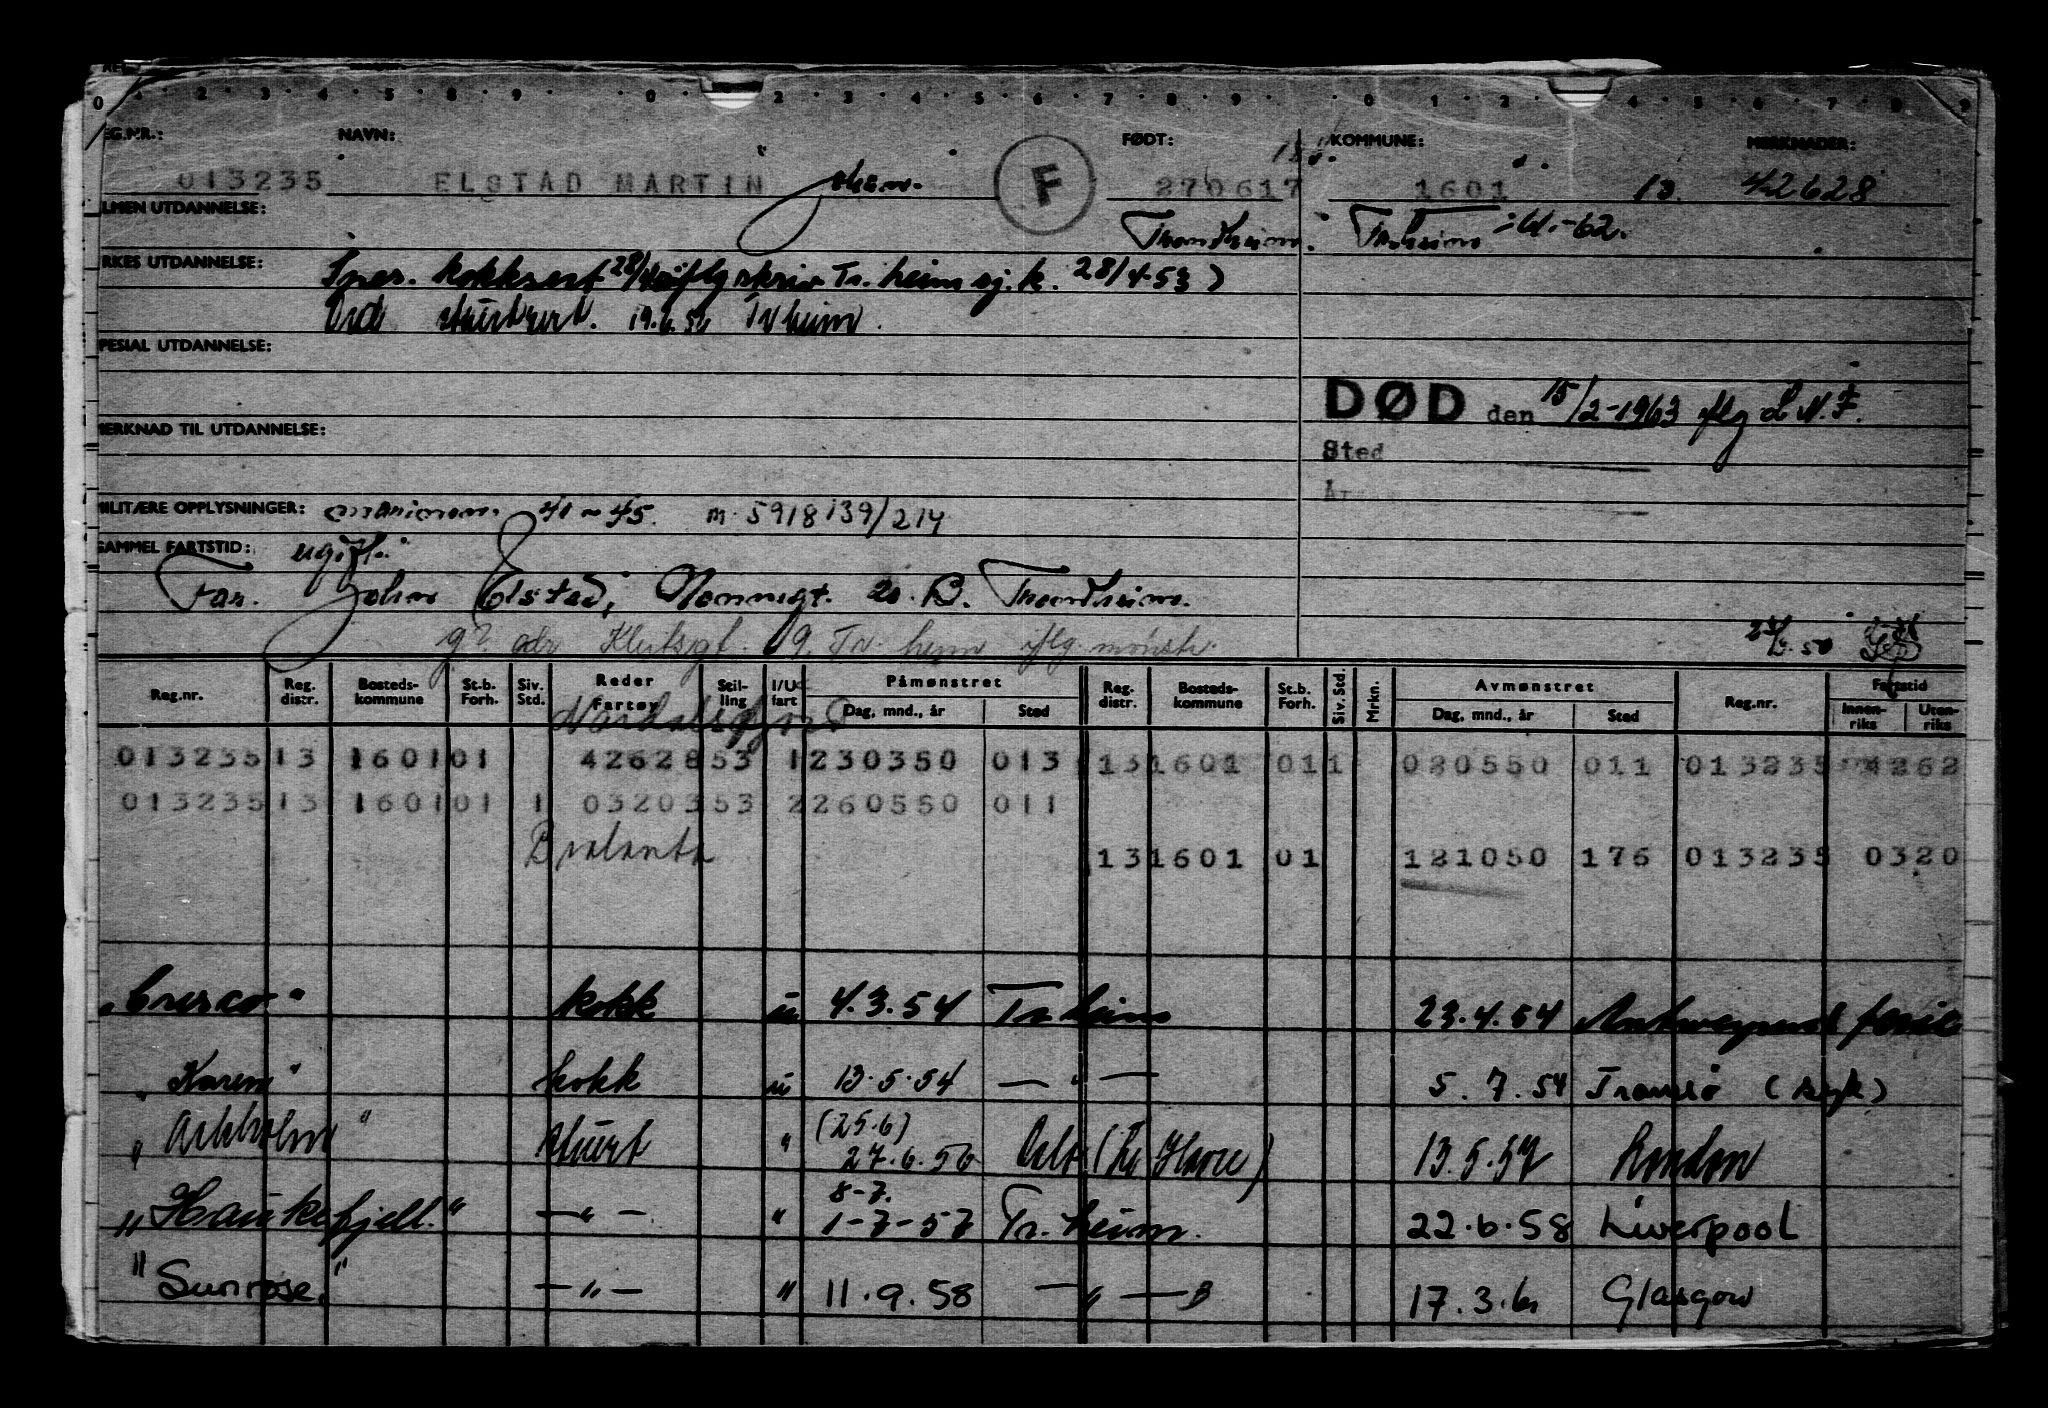 EG.NR.: NAVN: FØDT: KOMMUNE: MERKNADER:
013235 ELSTAD MARTIN F 270617 1601 13. 42628
LMEN UTDANNELSE:
Trondheim. Tr.heim :61.-62.
RKES UTDANNELSE: kokksert 28/4 iflg skriv Tr.heim sj.k. 28/4-53)
stuert sert. 19.6.56 Tr heim.
PESIAL UTDANNELSE:
DØD den 15/2-1963 iflg L.N.F.
MERKNAD TIL UTDANNELSE:
Sted
År
MILITÆRE OPPLYSNINGER: marinen. 41-45. m. 5918139/214
SAMMEL FARTSTID: ugift.
Far. John Elstad, 20. B. Trondheim.
adr Tr. heim iflg. mønstr.
Reg.nr. Reg. distr. Bosteds-kommune St.b. Forh. Siv. Std. Reder Fartøy Stil-ling I/U fart Påmønstret Dag, mnd., år Sted Reg. distr. Bosteds-kommune St.b. Forh. Siv. Std. Mrkn. Avmønstret Dag, mnd., år Sted Reg.nr. Fartstid Innen-riks Uten-riks
013235 13 1601 01 42628 53 1 230350 013 13 1601 01 1 020550 011 013235 4262
013235 13 1601 01 1 03203 53 2 260550 011
Bralanta 13 1601 01 121050 176 013235 0320
"Cresco" kokk u 4.3.54 Tr.heim 23.4.54 Antwerpen ferie
"Karen" kokk u 13.5.54 —"— 5.7.54 Tromsø (syk)
"Askholm" stuert " (25.6) 27.6.56 Oslo 13.5.57 London
"Haukefjell." —"— " 8-7. 1-7-57 Tr.heim. 22.6.58 Liverpool
"Sunrose." —"— " 11.9.58 —"— 17.3.61 Glasgow